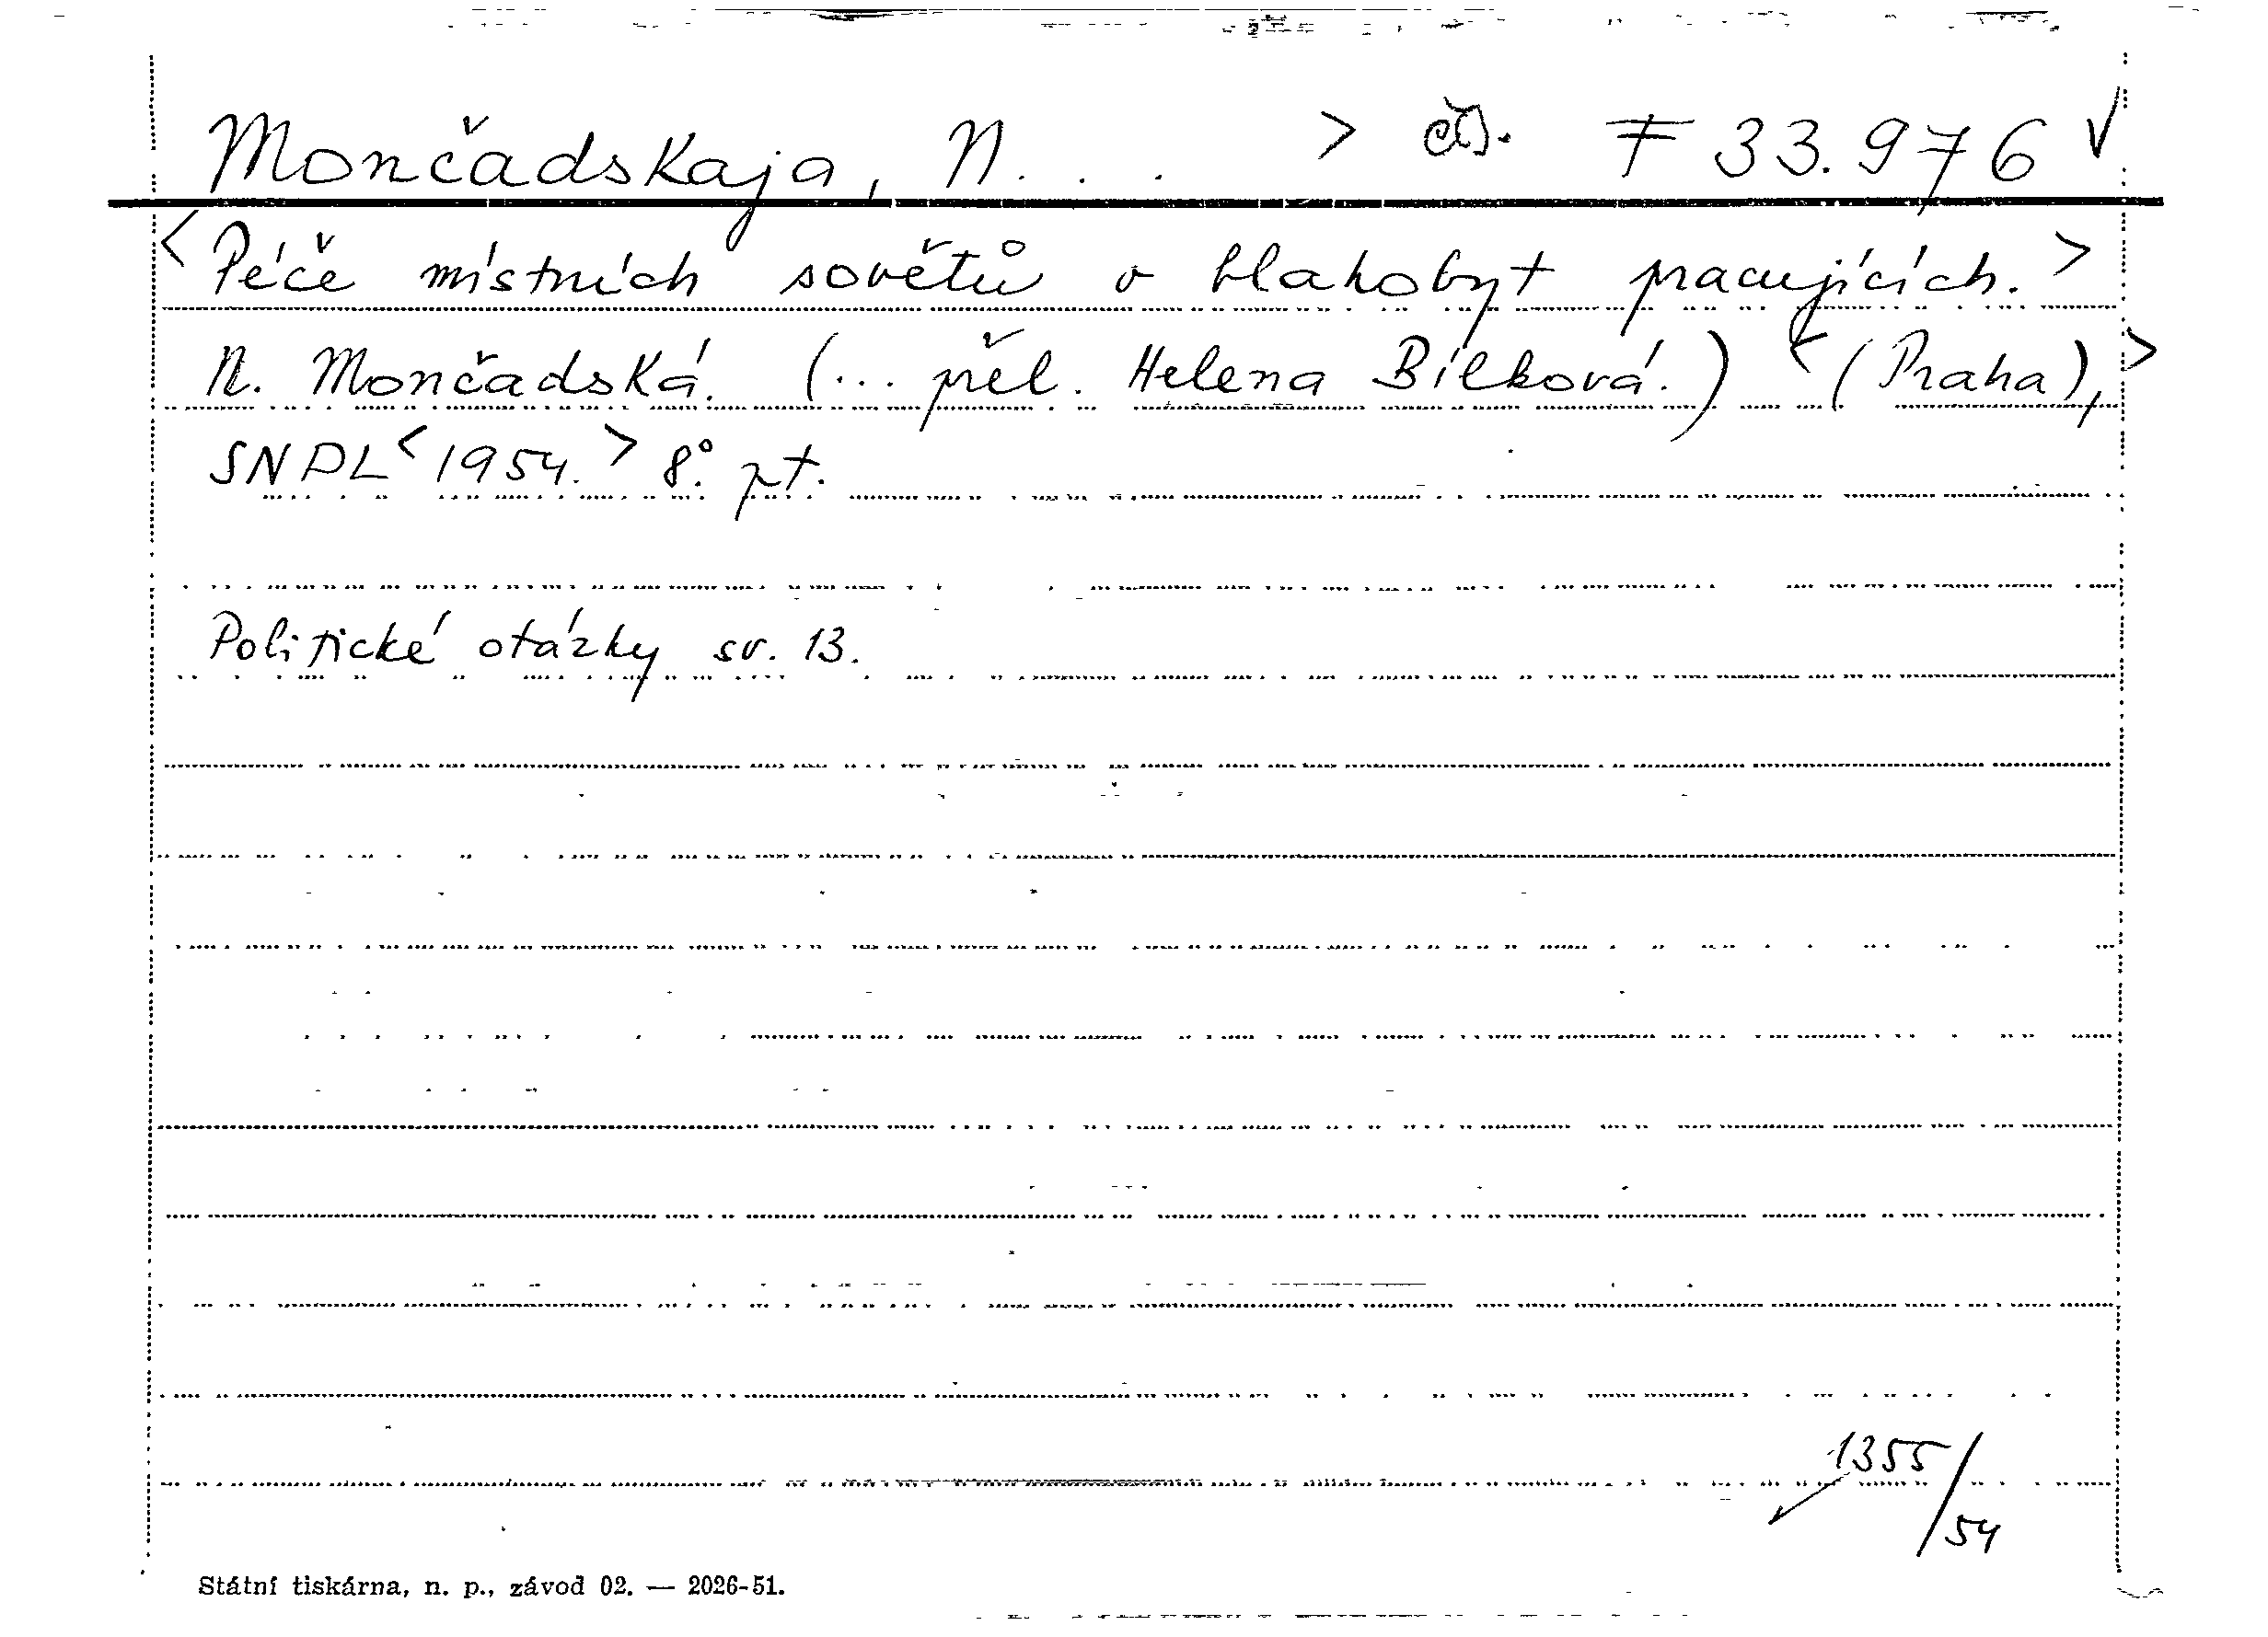 Mončadskaja, N. . . > čs. F 33.976 √
<Péče místních sovětů o blahobyt pracujících.>
N. Mončadská. (... přel. Helena Bílková.) <(Praha),>
SNPL <1954.> 8°. pt.
Politické otázky sv. 13.
1355/54
Státní tiskárna, n. p., závod 02. — 2026-51.